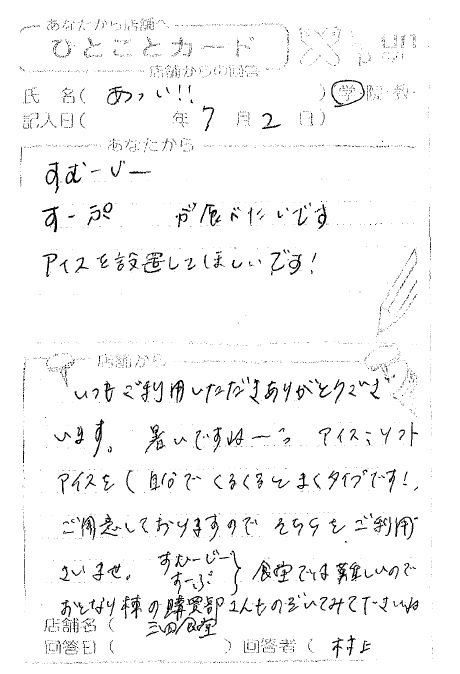 あなたから店舗へ
ひとことカード
店舗からの回答
氏 名( あつい!! ) 学・院・教・
記入日( 年 7 月 2 日)
あなたから
すむーじー
すーぷ が食べたいです
アイスを設置してほしいです!
店舗から
いつもご利用いただきありがとうござ
います。暑いですね〜っ アイス:ソフト
アイスを(自分でくるくるとまくタイプです!)
ご用意しておりますので そちらをご利用
さいませ。 すむーじー
すーぷ } 食堂では難しいので
おとなり棟の購買部さんものぞいてみてくださいね
店舗名(
三四食堂
回答日( ) 回答者( 村上